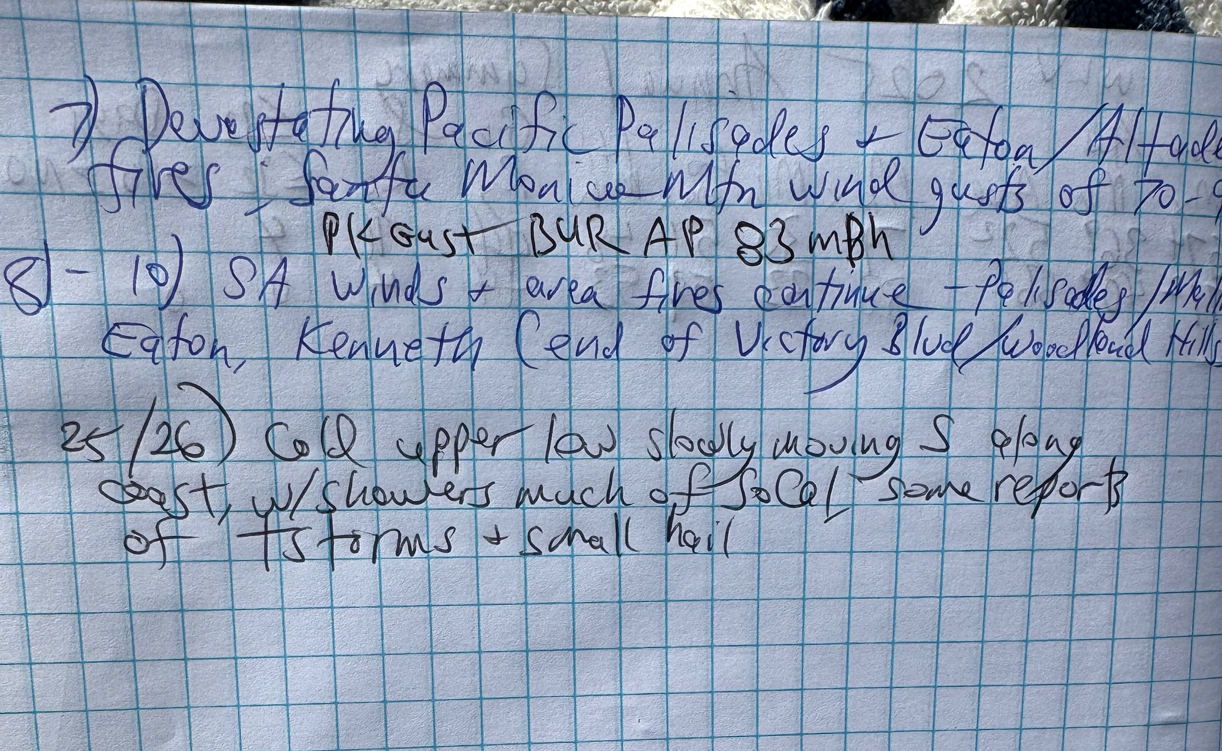 7) Devastating Pacific Palisades + Eaton/Altade
fires; Santa Monica Mtn wind gusts of 70-9
PK Gust BUR AP 83 mph
8) - 10) SA winds + area fires continue - Palisades/Mal
Eaton, Kenneth (end of Victory Blvd/Woodland Hills
25/26) Cold upper low slowly moving S along
coast, w/showers much of SoCal some reports
of Tstorms + small hail